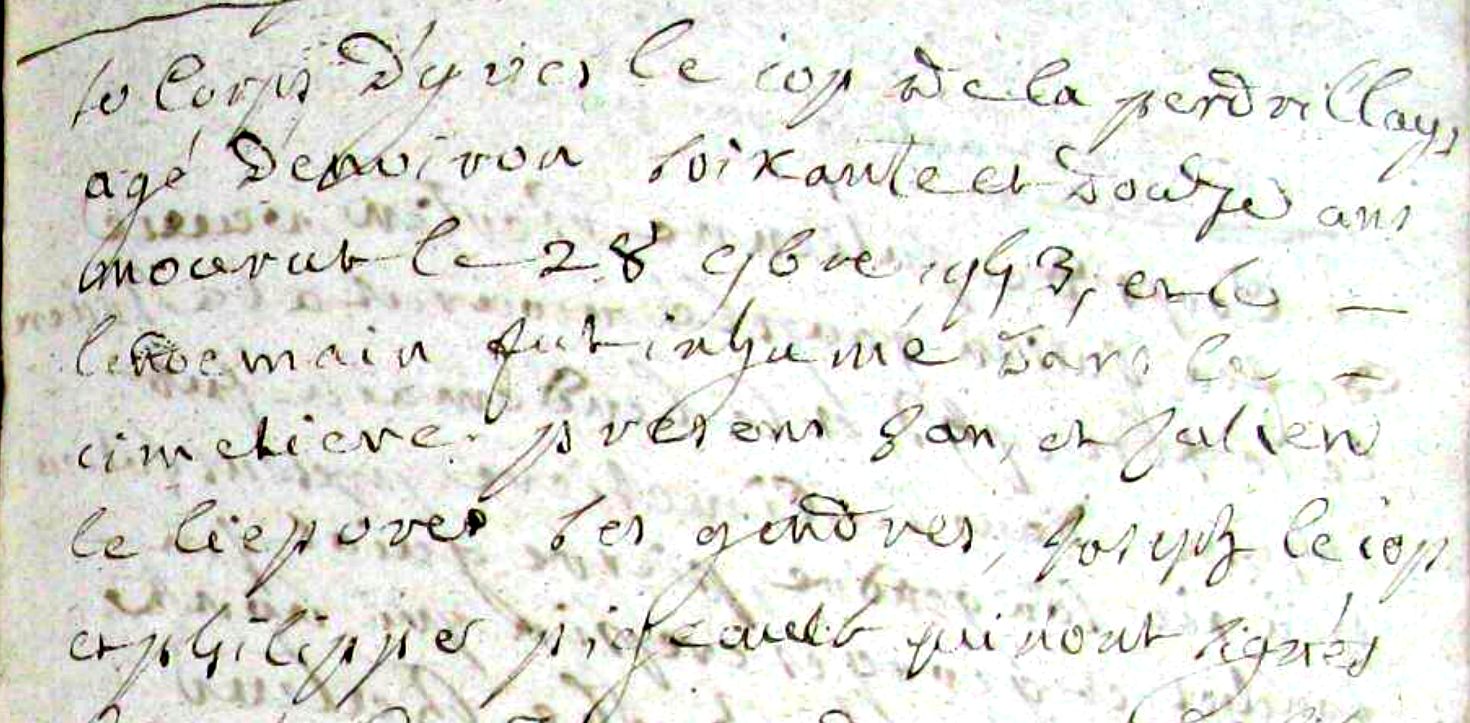 le corps d'yves le cop de la perdrillays
agé d'environ soixante et douze ans
mourut le 28 9bre et le
lendemain fut inhumé dans le
cimetiere. presens Jan, et Julien
le liepvre ses gendres, Joseph le cop
et philippe pigeault qui n'ont signés